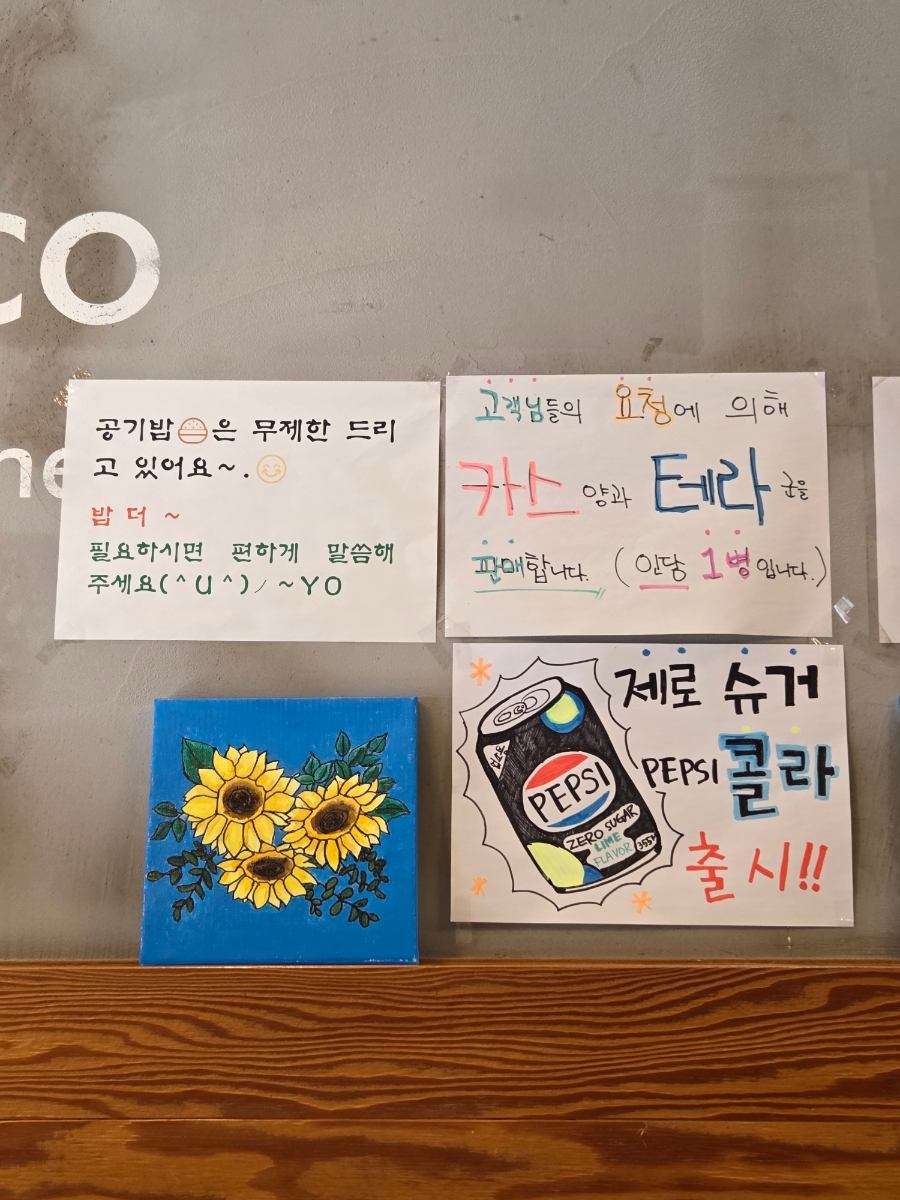 co
ne
공기밥은 무제한 드리
고 있어요~.
밥 더 ~
필요하시면 편하게 말씀해
주세요(^U^)ノ~YO
고객님들의 요청에 의해
카스 양과 테라 군을
판매합니다. (인당 1병입니다.)
제로 슈거
PEPSI 콜라
출시!!
PEPSI
ZERO SUGAR
LIME
FLAVOR 355